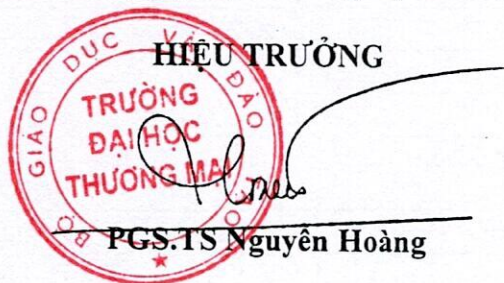 HIỆU TRƯỞNG
BỘ GIÁO DỤC VÀ ĐÀO
TRƯỜNG
ĐẠI HỌC
THƯƠNG MẠI
PGS.TS Nguyễn Hoàng